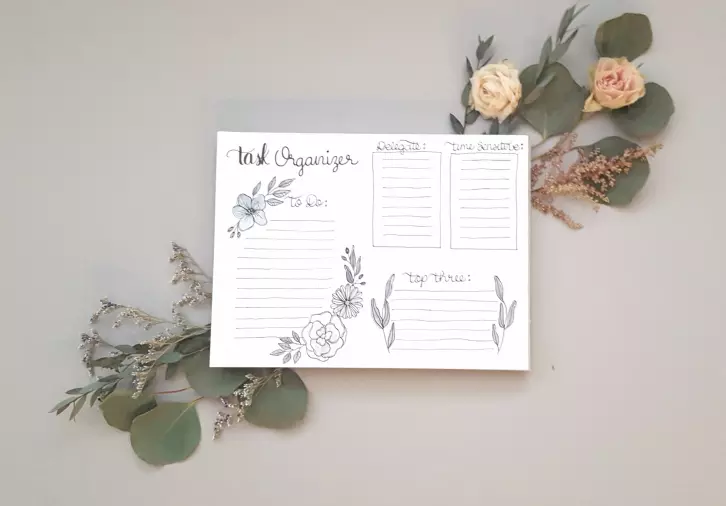 Task Organizer
To Do:
Delegate:
Time Sensitive:
Top Three: